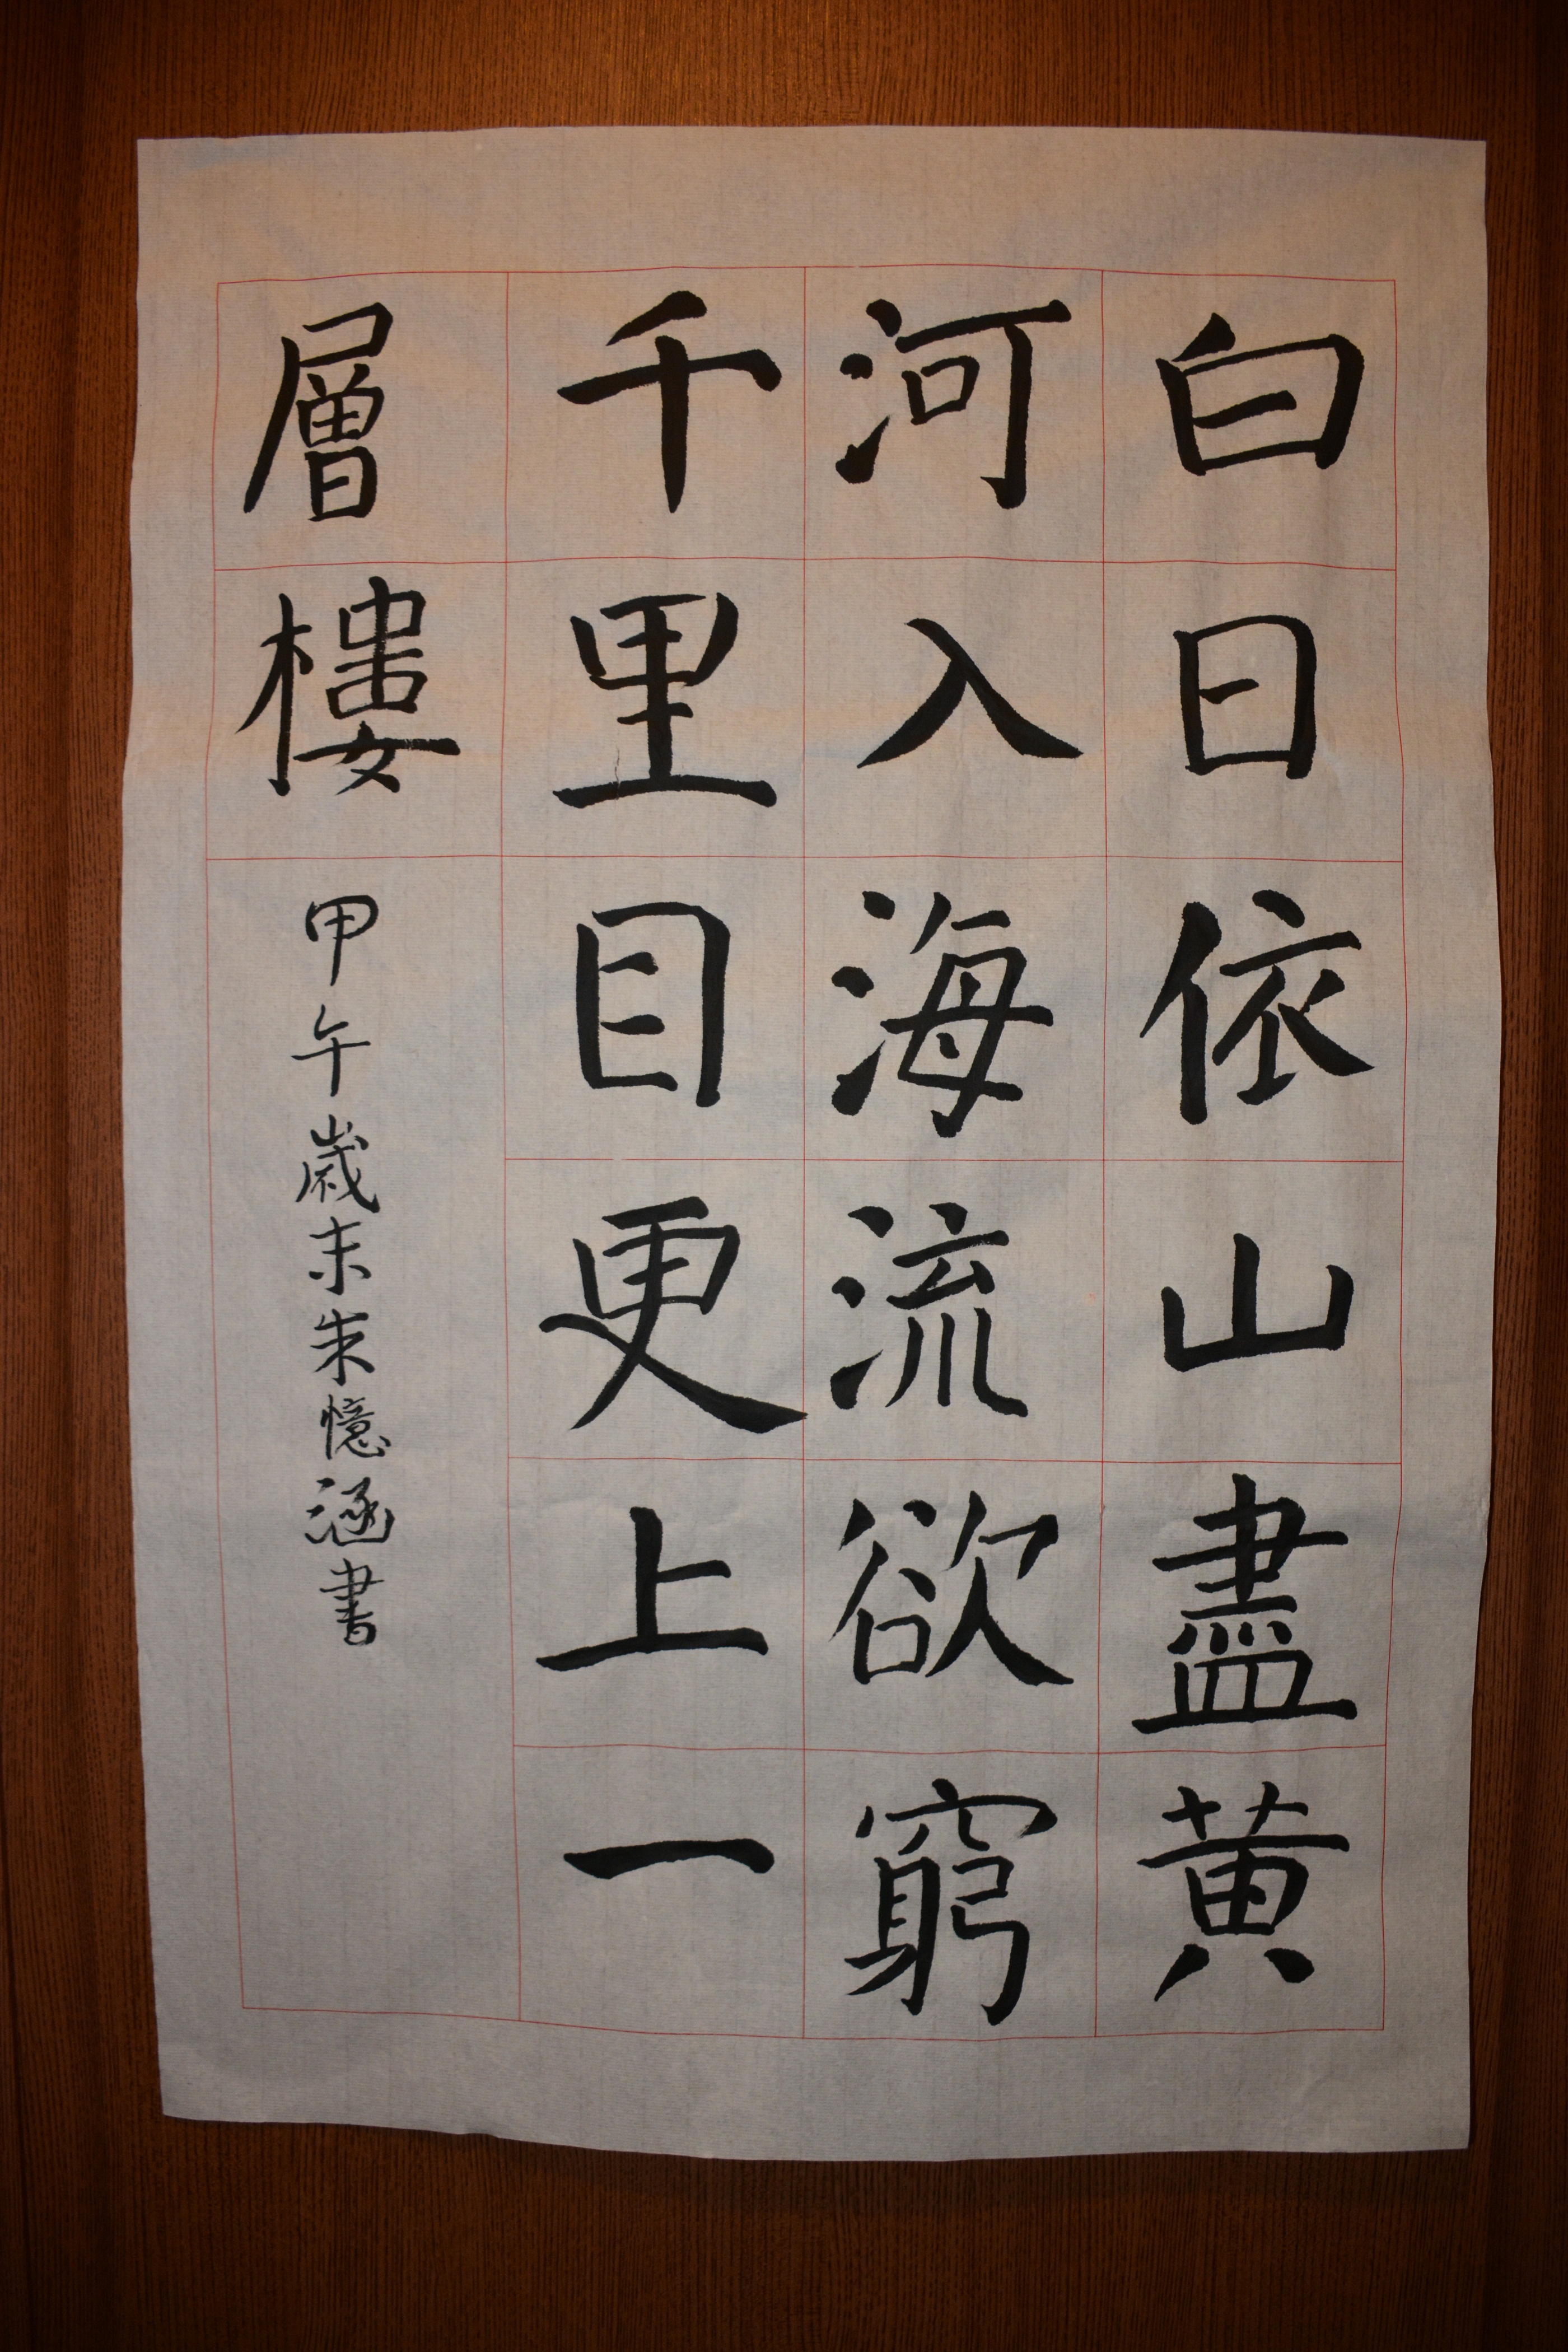 白日依山盡黃
河入海流欲窮
千里目更上一
層樓
甲午歲末朱憶涵書